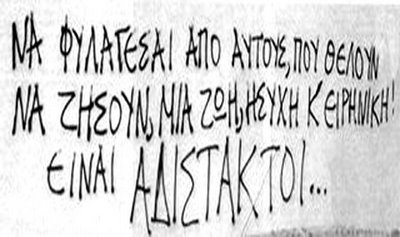 ΝΑ ΦΥΛΑΓΕΣΑΙ ΑΠΟ ΑΥΤΟΥΣ, ΠΟΥ ΘΕΛΟΥΝ
ΝΑ ΖΗΣΟΥΝ, ΜΙΑ ΖΩΗ, ΗΣΥΧΗ Κ' ΕΙΡΗΝΙΚΗ!
ΕΙΝΑΙ ΑΔΙΣΤΑΚΤΟΙ...